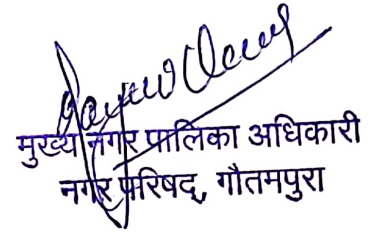 मुख्य नगर पालिका अधिकारी
नगर परिषद्, गौतमपुरा